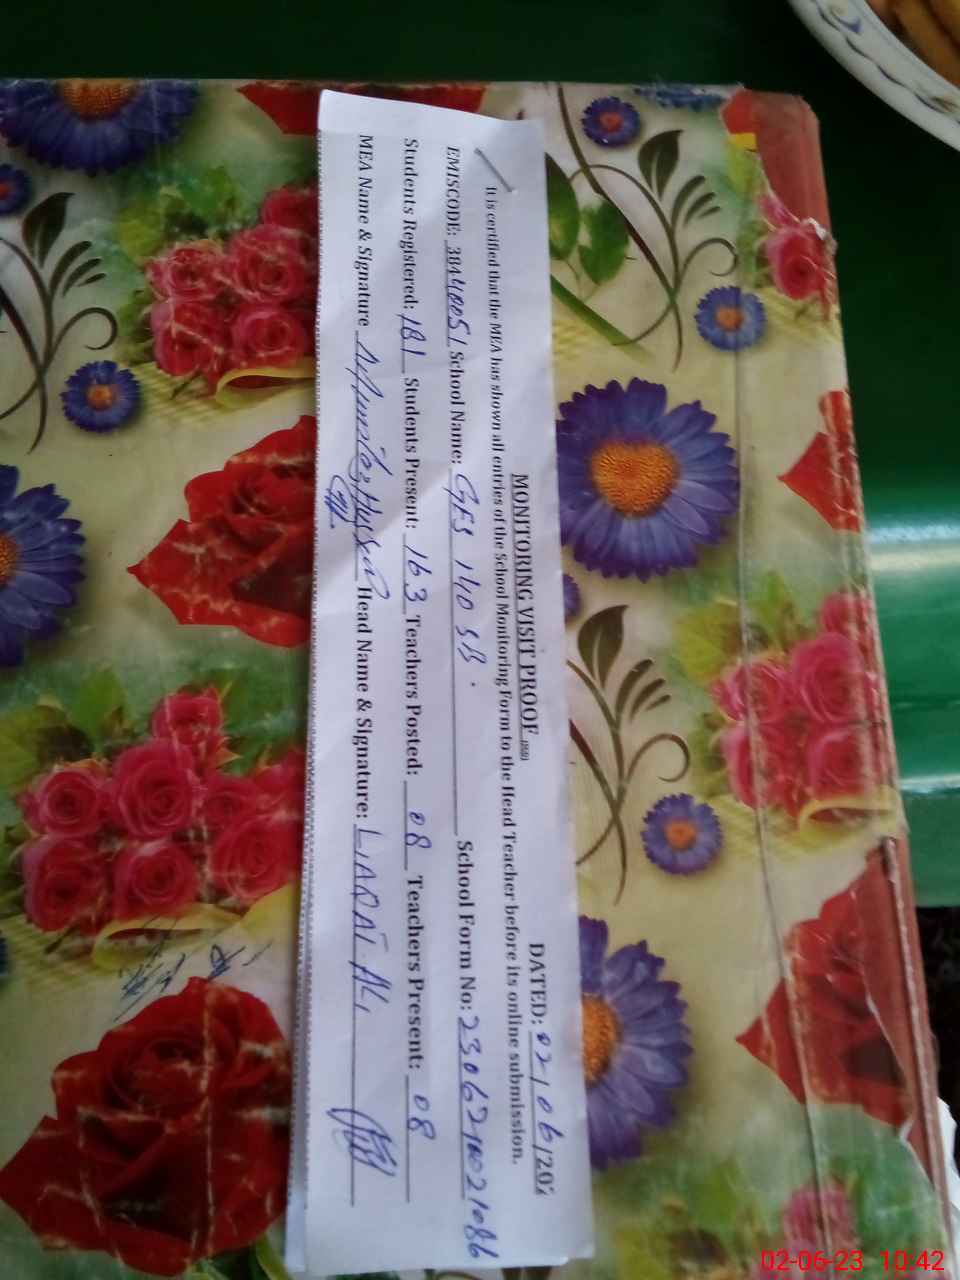 MONITORING VISIT PROOF DATED: 02/06/202
It is certified that the MEA has shown all entries of the School Monitoring Form to the Head Teacher before its online submission.
EMISCODE: 38440051 School Name: GES 140 SB. School Form No:
Students Registered: 181 Students Present: 163 Teachers Posted: 08 Teachers Present: 08
MEA Name & Signature Head Name & Signature: LIAQAT ALI
02-06-23 10:42